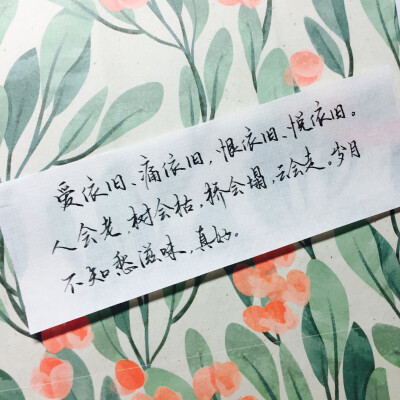 爱依旧、痛依旧,恨依旧、悦依旧。
人会老,树会枯,桥会塌,云会走。岁月
不知愁滋味,真好。